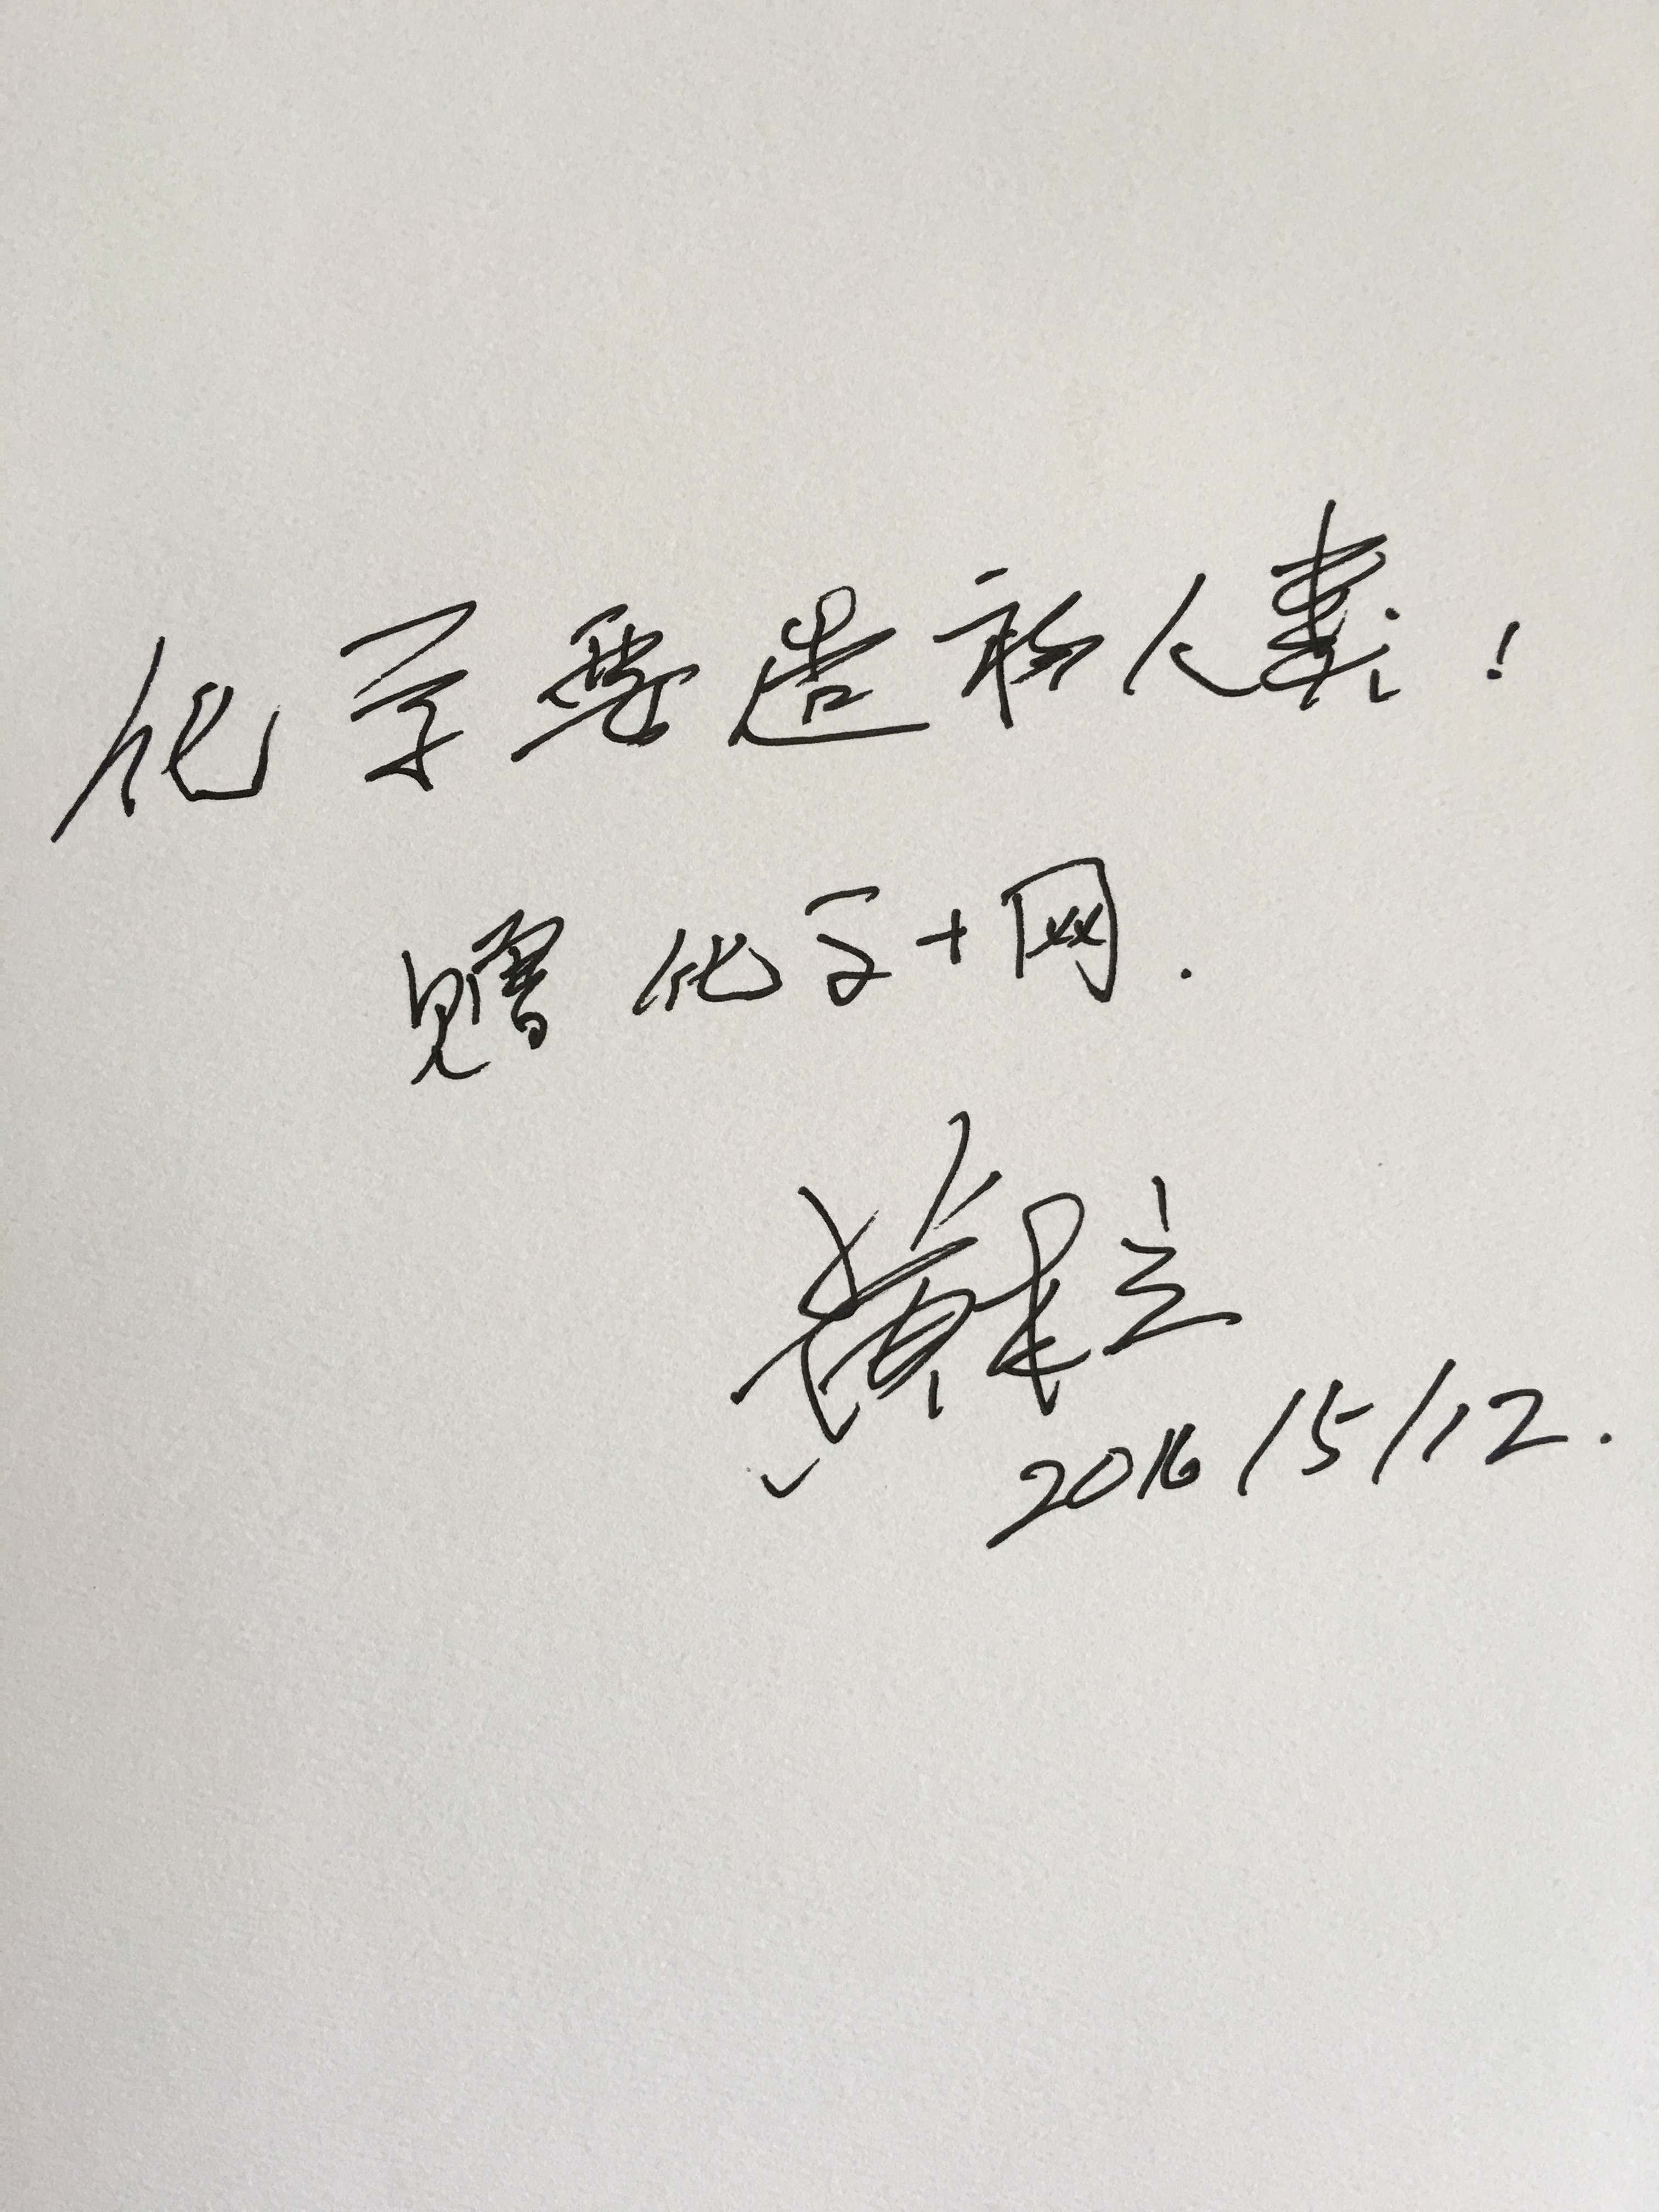 化学要造福人类!
赠 化学+网.
黄建立
2016/5/12.